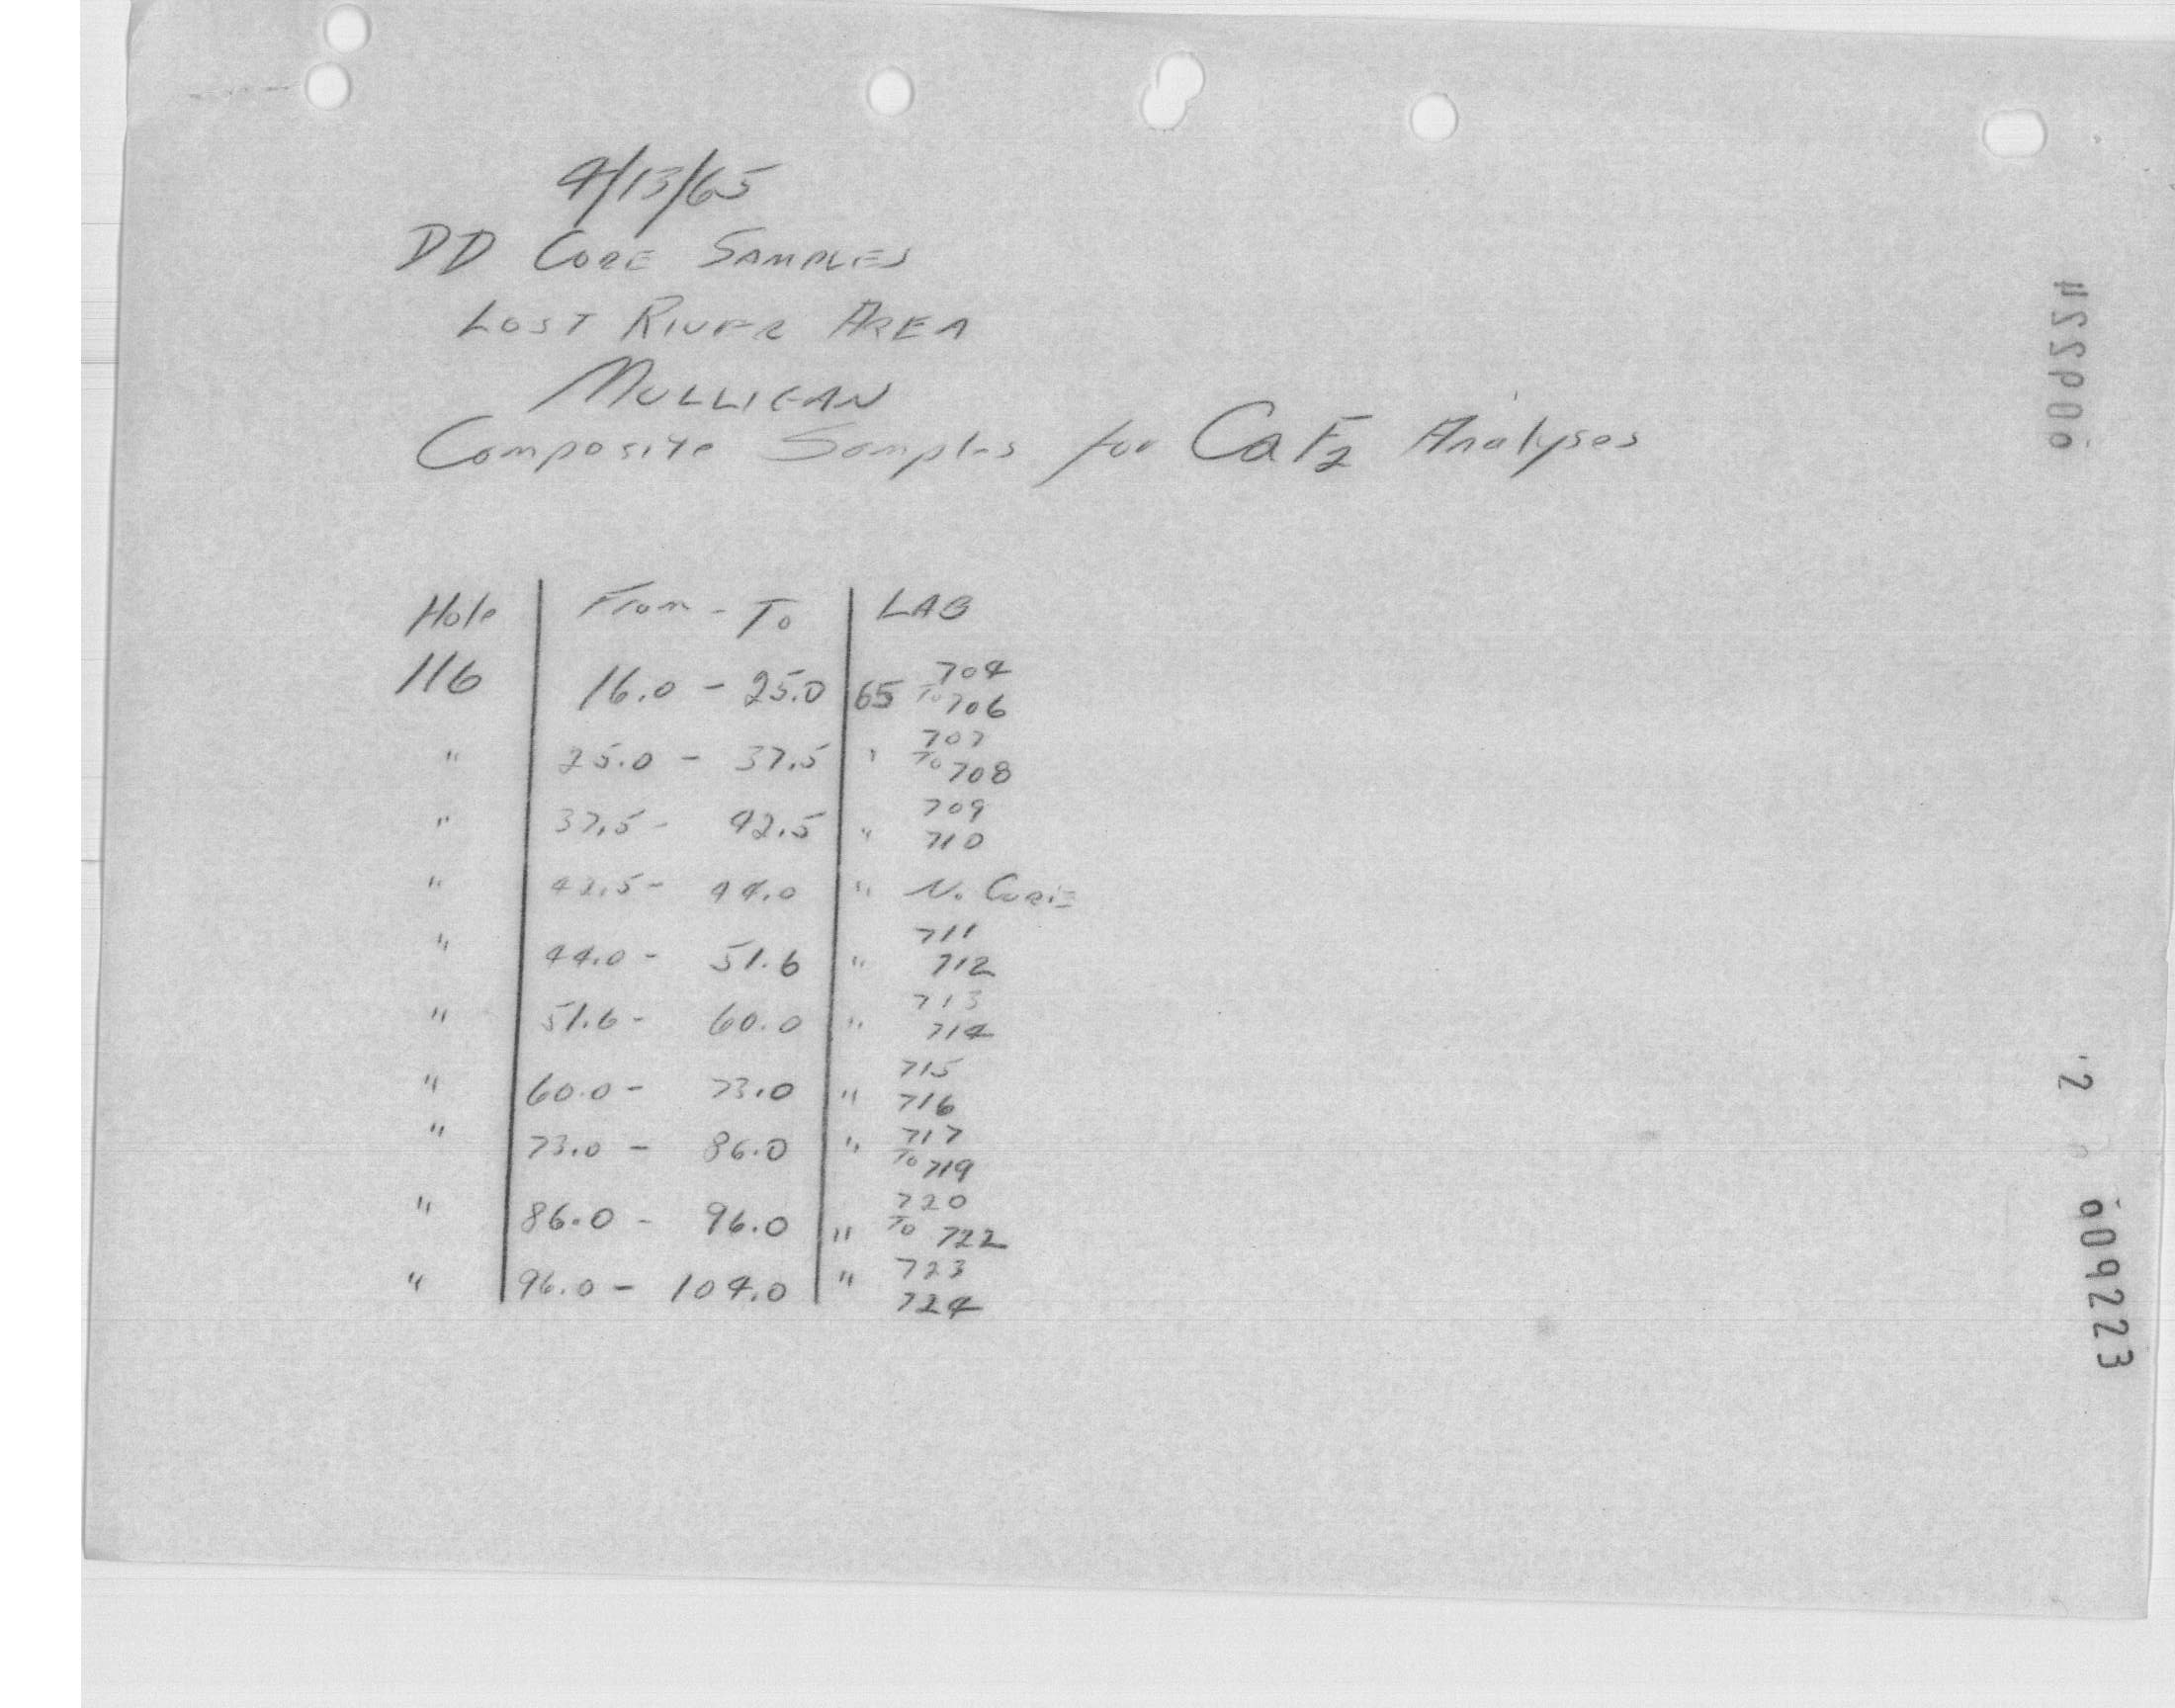 4/13/65
DD CORE SAMPLES
LOST RIVER AREA
MULLIGAN
Composite Samples for CaF2 Analyses
Hole From - To LAB
116 16.0 - 25.0 65 704 To 706
" 25.0 - 37.5 " 707 To 708
" 37.5 - 42.5 " 709 710
" 42.5 - 44.0 " No CORE
" 44.0 - 51.6 " 711 712
" 51.6 - 60.0 " 713 714
" 60.0 - 73.0 " 715 716
" 73.0 - 86.0 " 717 To 719
" 86.0 - 96.0 " 720 To 722
" 96.0 - 104.0 " 723 724
009223